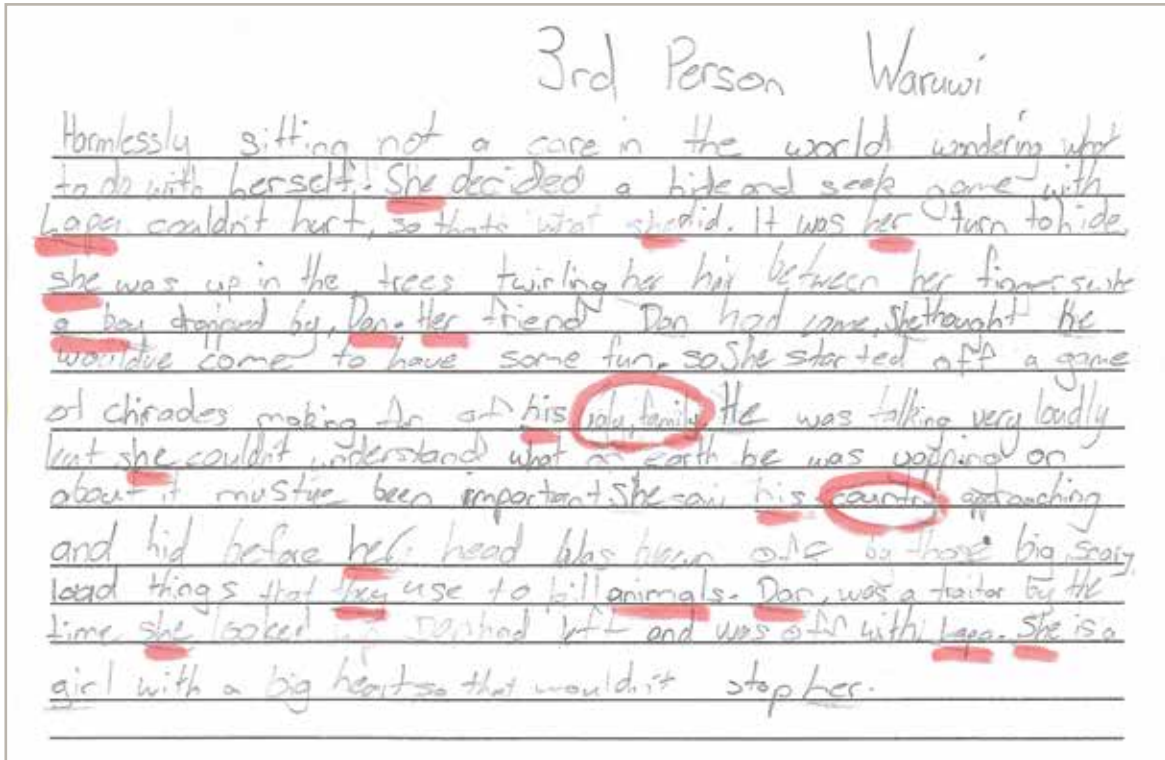 3rd Person Waruwi
Harmlessly sitting not a care in the world wondering what
to do with herself. She decided a hide and seek game with
Lapa couldn't hurt, so thats what she did. It was her turn to hide,
she was up in the trees twirling her hair between her fingers
a boy dropped by, Dan. Her friend Dan had come, She thought he
would've come to have some fun. so She started off a game
of chirades making fun of his ugly family He was talking very loudly
but she couldn't understand what on earth he was on
about it must've been important. She saw his country approaching
and hid before her head was off by those big scary
load things that they use to kill animals. Dan, was a traitor by the
time she looked Dan had left and was off with Lapa. She is a
girl with a big heart so that wouldn't stop her.